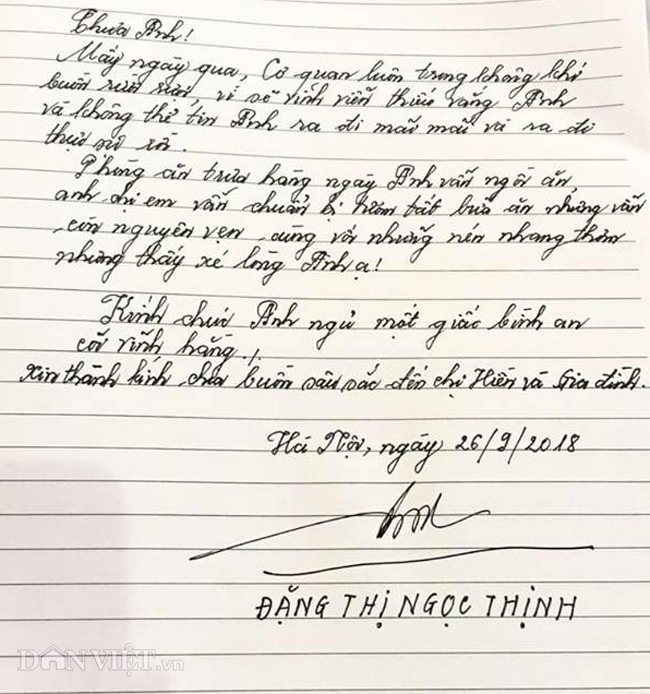 Thưa Anh!
Mấy ngày qua, Cơ quan luôn trong không khí
buồn rười rượi, vì sẽ vĩnh viễn thiếu vắng Anh
và không thể tin Anh ra đi mãi mãi và ra đi
thực sự rồi.
Phòng ăn trưa hàng ngày Anh vẫn ngồi ăn,
anh chị em vẫn chuẩn bị tươm tất bữa ăn nhưng vẫn
còn nguyên vẹn cùng với những nén nhang thơm
nhưng thấy xé lòng Anh ạ!
Kính chúc Anh ngủ một giấc bình an
cõi vĩnh hằng./.
Xin thành kính chia buồn sâu sắc đến chị Hiền và Gia đình.
Hà Nội, ngày 26/9/2018
ĐẶNG THỊ NGỌC THỊNH
DÂNVIỆT.vn